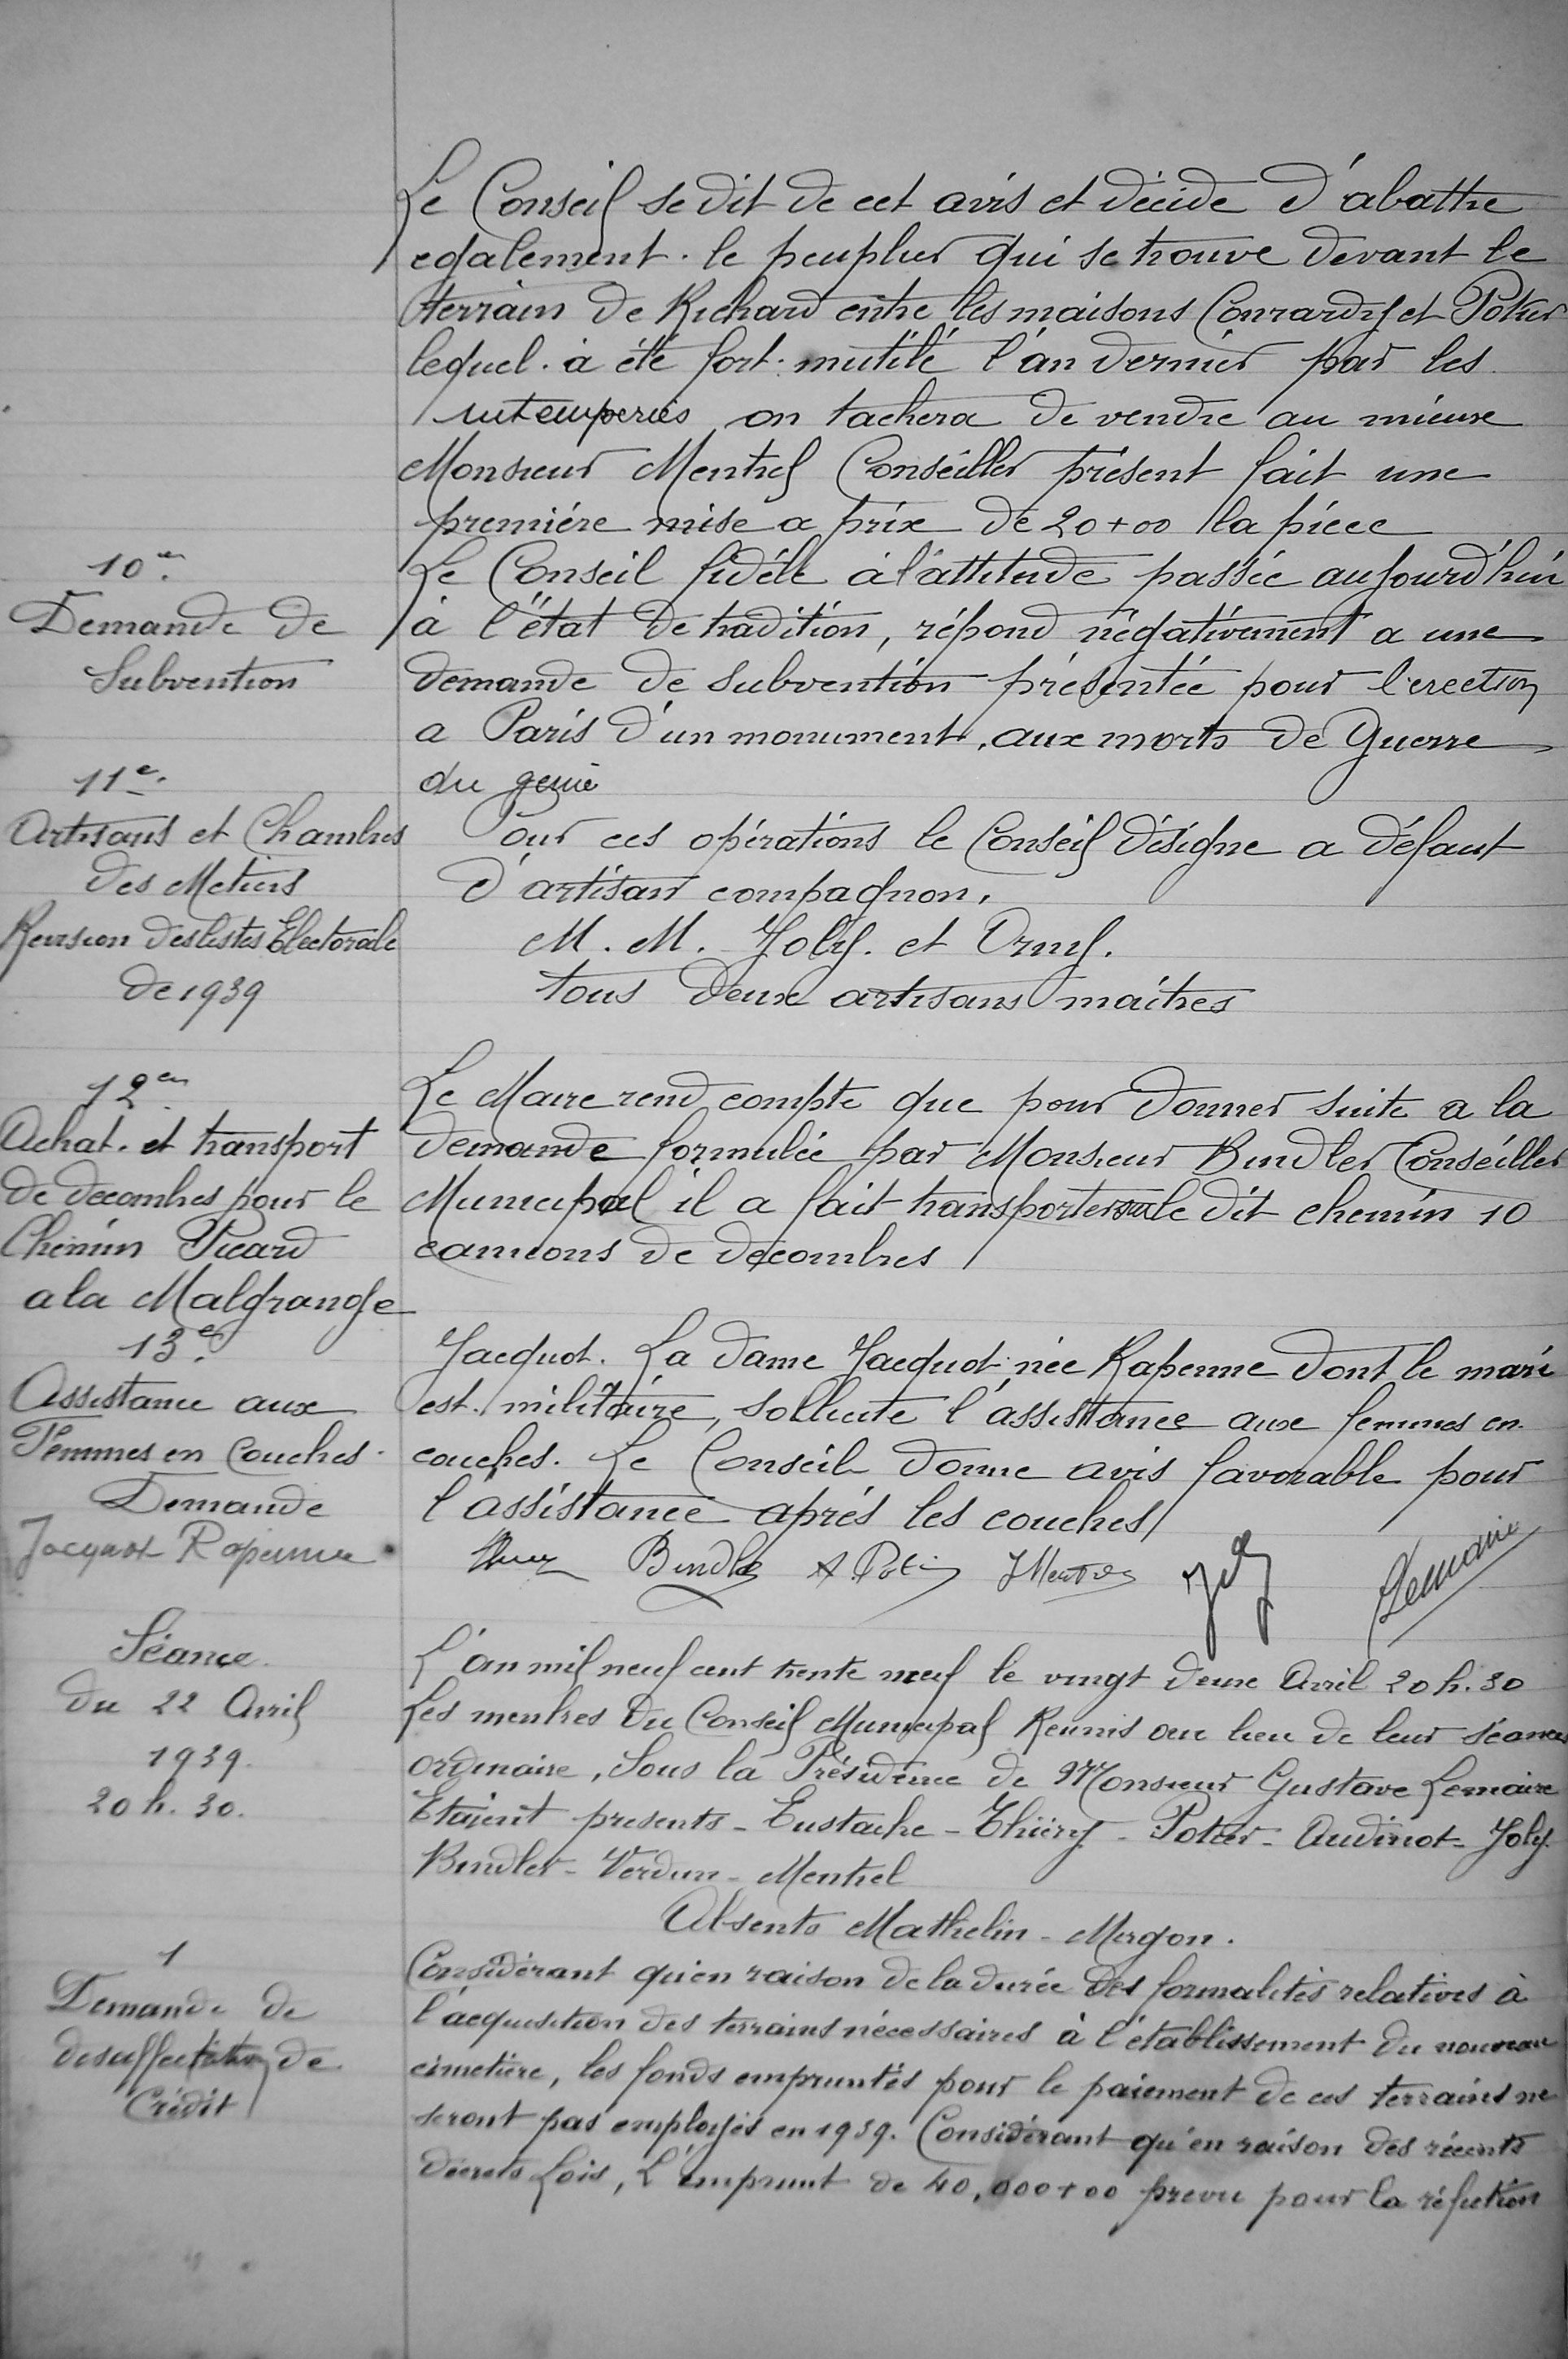 Le Conseil se dit de cet avis et décide d'abattre
egalement. le peuplier qui se trouve devant le
terrain de Richard entre les maisons Conrardy et Potier
lequel. à été fort. mutilé l'an dernier par les
intemperies on tachera de vendre au mieux
Monsieur Mentrel Conséiller présent fait une
premiére mise a prix de 20+00 la piéce
10e.
Demande de
Subvention
Le Conseil fidéle à l'attitude passée aujourd'hui
à l'état de tradition, répond négativement a une
demande de subvention présentée pour l'erection
a Paris d'un monument, aux morts de Guerre
du genie
11e.
Artisans et Chambres
des Metiers
Revision des listes Electorale
de 1939
Pour ces opérations le Conseil désigne a défaut
d'artisan compagnon,
M. M. Joly. et Orny.
tous deux artisans maitres
12e
Achat. et transport
de decombres pour le
Chemin Picard
a la Malgrange
Le Maire rend compte que pour donner suite a la
demande formulée par Monsieur Bindler Conséiller
Municipal il a fait transporter sur le dit chemin 10
camions de decombres
13e.
Assistance aux
Femmes en Couches.
Demande
Jacquot Rapenne
Jacquot. La dame Jacquot née Rapenne dont le mari
est. militaire, sollicite l'assistance aux femmes en
couches. Le Conseil donne avis favorable pour
l'assistance aprés les couches
Bindler A Potier J Mentrel Lemaire
Séance
du 22 Avril
1939.
20 h. 30.
L'an mil neuf cent trente neuf le vingt deux Avril 20 h. 30
Les menbres du Conseil Municipal Reunis au lieu de leur séances
ordinaire, Sous la Présidence de Monsieur Gustave Lemaire
Etaient presents - Eustache - Thiéry - Potier - Audinot - Joly.
Bindler - Verdun - Mentrel
Absents Mathelin - Mergon.
1
Demande de
desaffectation de
Crédit
Considérant qu'en raison de la durée des formalités relatives à
l'acquisition des terrains nécessaires à l'établissement du nouveau
cimetière, les fonds empruntés pour le paiement de ces terrains ne
seront pas employés en 1939. Considérant qu'en raison des récents
décrets Lois, L'emprunt de 40,000+00 prevu pour la réfection